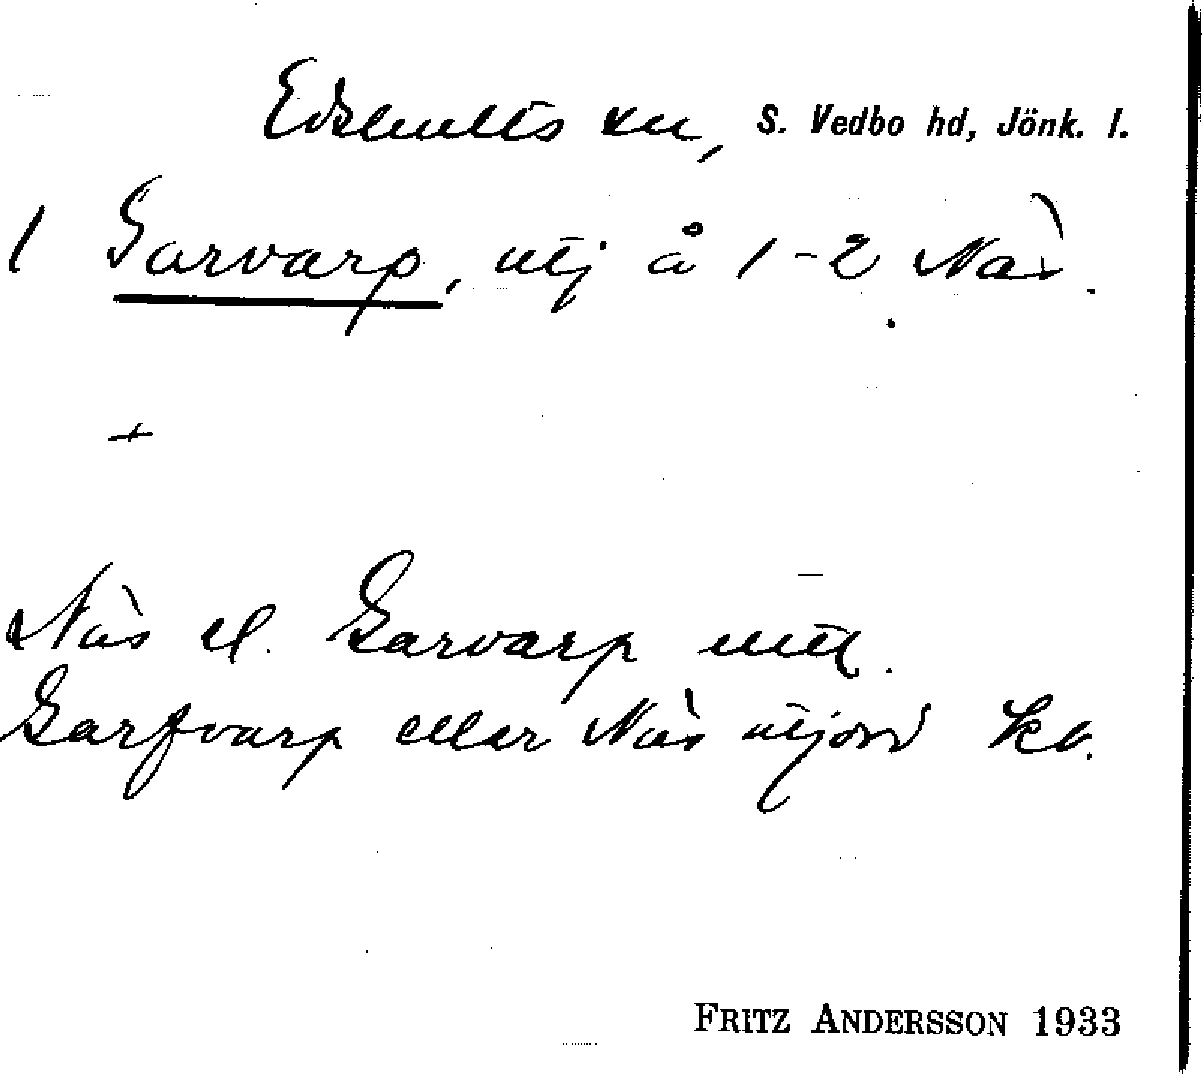 Edshults sn, S. Vedbo hd, Jönk. l.
1 Garvarp, utj å 1-2 Näs.
+
Näs el. Garvarp
Garfvarp eller Näs utjord kb.
FRITZ ANDERSSON 1933